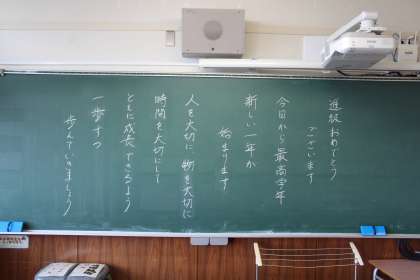 進級おめでとう
ございます
今日から最高学年
新しい一年が
始まります
人を大切に、物を大切に
時間を大切にして
ともに成長できるよう
一歩ずつ
歩んでいきましょう